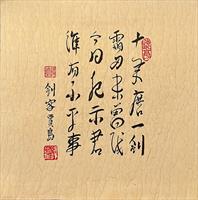 十年磨一剑
霜刃未曾试
今日把示君
谁有不平事
剑客贾岛